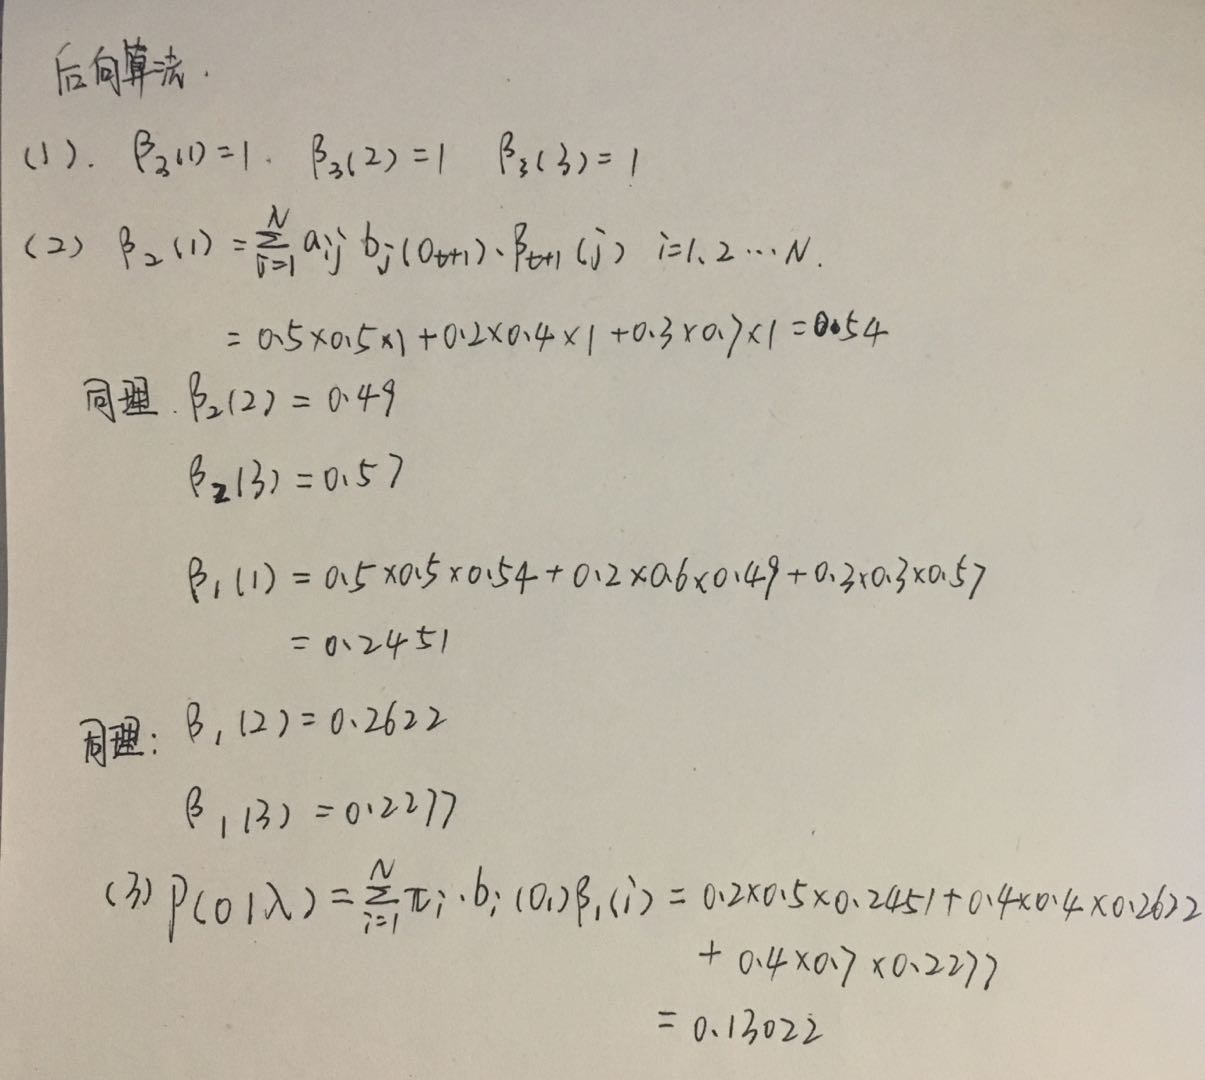 后向算法.
(1). β₃(1)=1. β₃(2)=1 β₃(3)=1
(2) β₂(1) = Σ_{j=1}^{N} a_{ij} b_j(O_{t+1})·β_{t+1}(j) i=1、2…N.
= 0.5×0.5×1+0.2×0.4×1+0.3×0.7×1=0.54
同理. β₂(2) = 0.49
β₂(3) = 0.57
β₁(1) = 0.5×0.5×0.54+0.2×0.6×0.49+0.3×0.3×0.57
= 0.2451
同理: β₁(2)=0.2622
β₁(3) = 0.2277
(3) P(O|λ) = Σ_{i=1}^{N} π_i·b_i(O₁)β₁(i) = 0.2×0.5×0.2451+0.4×0.4×0.2622
+ 0.4×0.7×0.2277
= 0.13022